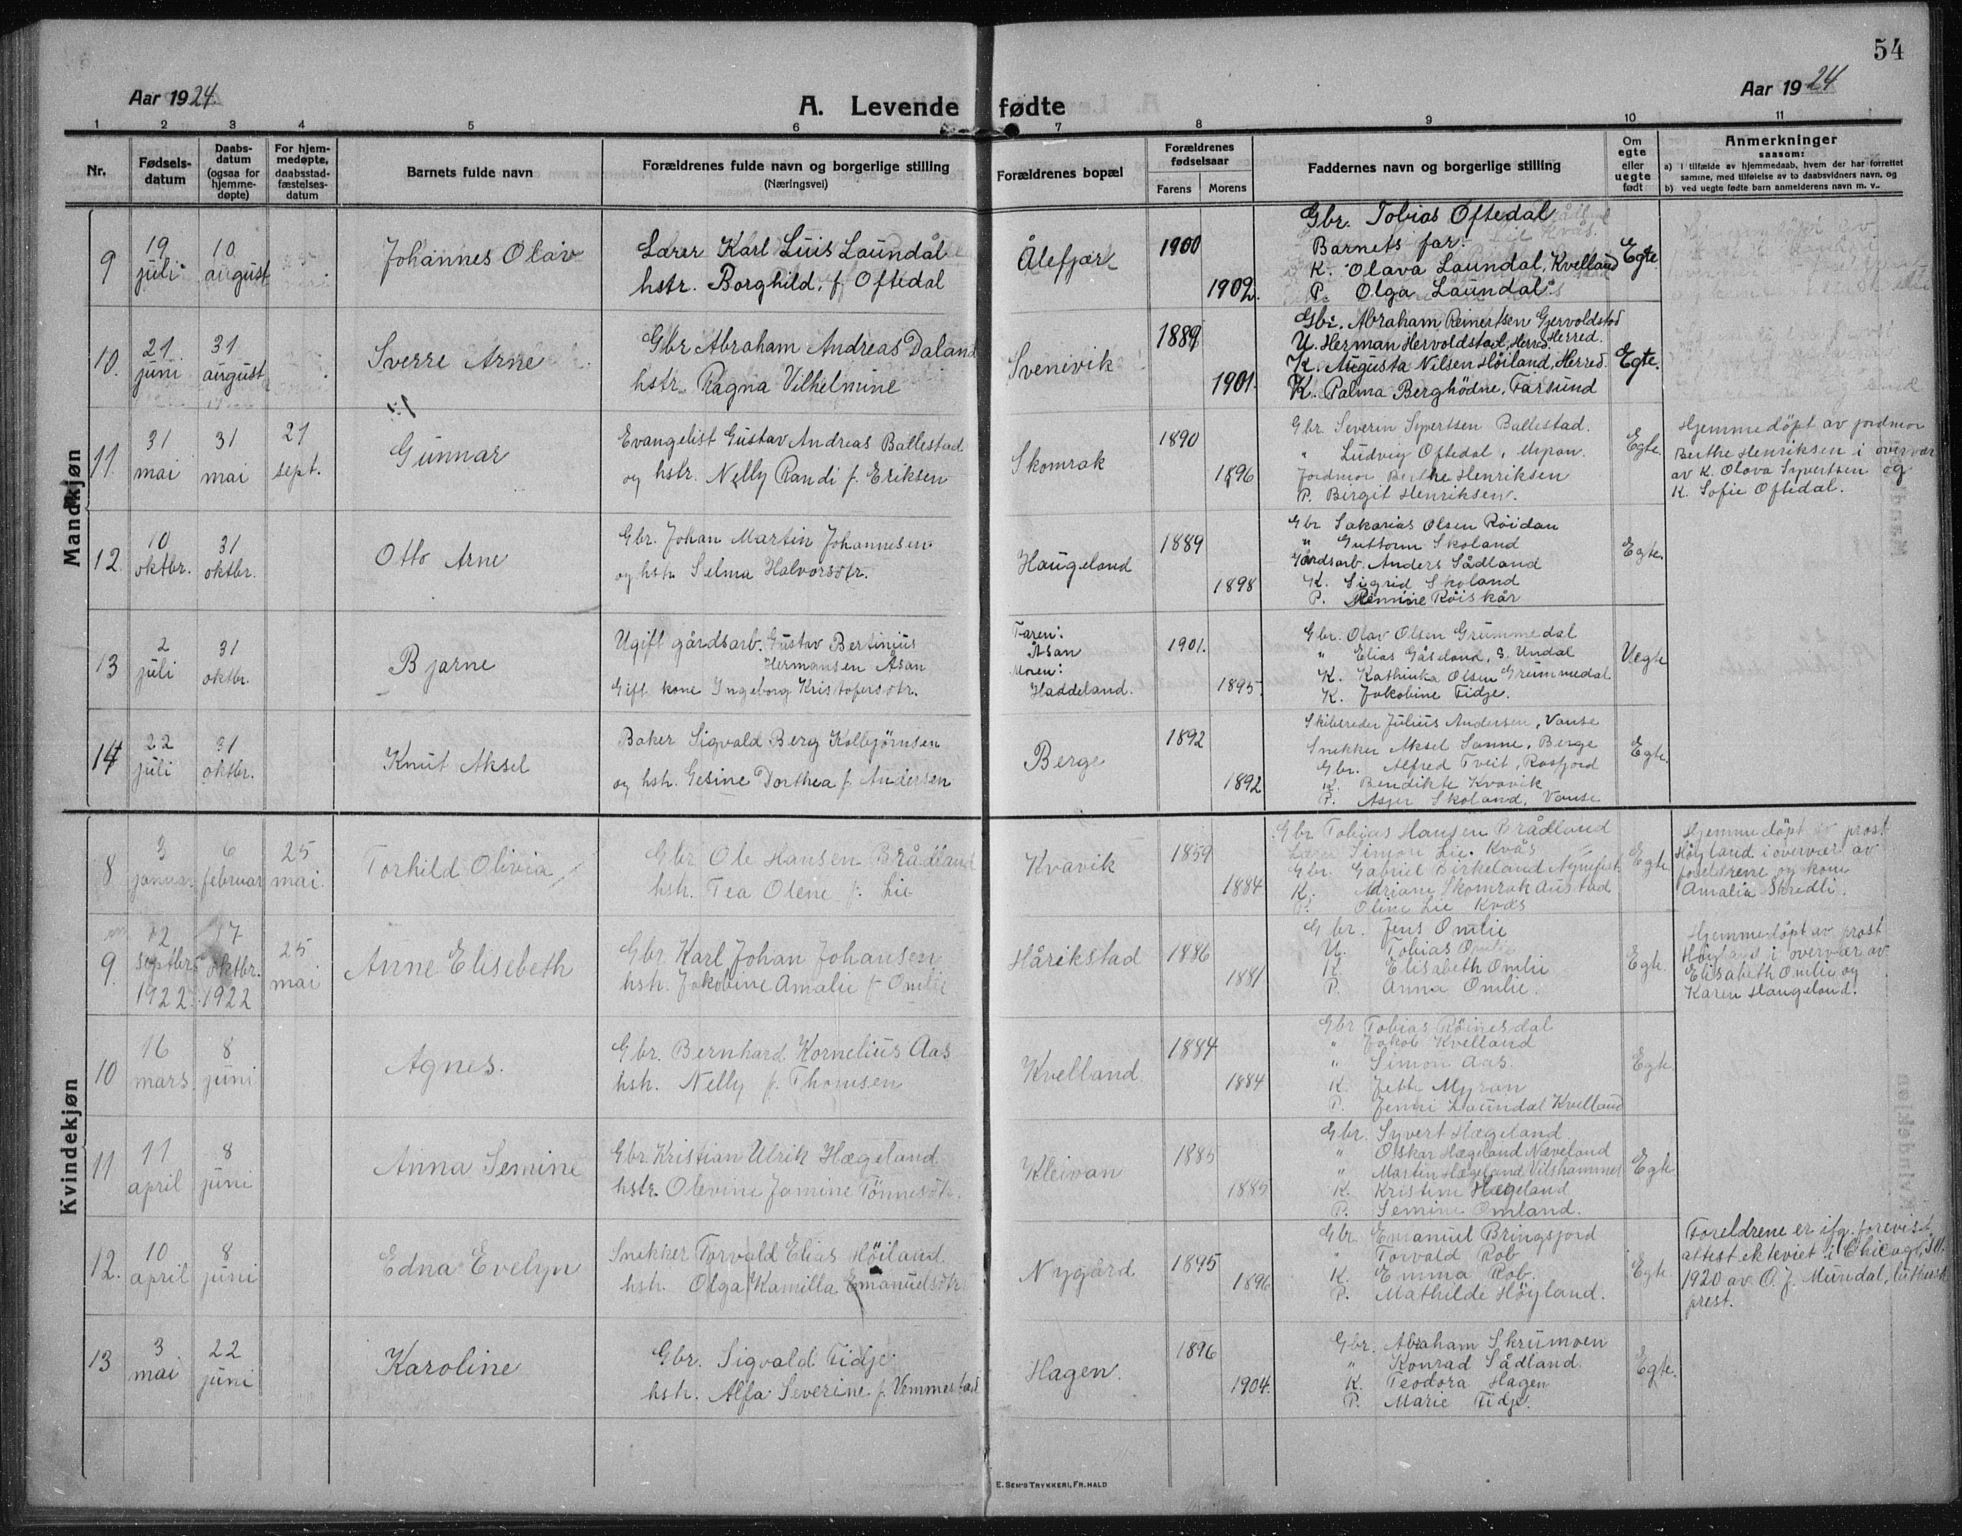 54
Aar 1924.
A. Levende fødte
Aar 1924
1 2 3 4 5 6 7 8 9 10 11
Nr.
Fødsels-
datum
Daabs-
datum
(ogsaa for
hjemme-
døpte)
For hjem-
medøpte,
daabsstad-
fæstelses-
datum
Barnets fulde navn
Forældrenes fulde navn og borgerlige stilling
(Næringsvei)
Forældrenes bopæl
Forældrenes
fødselsaar
Farens Morens
Faddernes navn og borgerlige stilling
Om
egte
eller
uegte
født
Anmerkninger
saasom:
a) I tilfælde av hjemmedaab, hvem der har forrettet
samme, med tilføielse av to daabsvidners navn, og
b) ved uegte fødte barn anmelderens navn m. v.
Mandkjøn
9
19
juli
10
august
Johannes Olav
Lærer Karl Luis Laundal
hstr. Borghild, f. Oftedal
Ålefjær
1900
1902.
Gbr. Tobias Oftedal
Barnets far.
K. Olava Laundal, Kvelland
P. Olga Laundal.
Egte.
10.
21
juni
31
august
Sverre Arne
Gbr Abraham Andreas Daland
hstr. Ragna Vilhelmine
Svenevik
1889
1901.
Gbr. Abraham Reinertsen Gjervoldstad
Herred.
U. Herman Hervoldstad, Herred
K. Augusta Nilsen Höiland, Herred
K. Palma Berghödne, Farsund
Egte.
11.
31
mai
31
mai
21
sept.
Gunnar
Evangelist Gustav Andreas Ballestad
og hstr. Nelly Randi f. Eriksen
Skomrak
1890
1896
Gbr Severin Sypertsen Ballestad.
" Ludvig Oftedal,
Jordmor Berthe Henriksen
P. Birgit Henriksen.
Egte.
Hjemmedöpt av jordmor
Berthe Henriksen i overvær
av K. Olava Syvertsen og
K. Sofie Oftedal.
12
10
oktbr.
31
oktbr.
Otto Arne
Gbr. Johan Martin Johannesen
og hstr Selma Halvorsdtr.
Haugeland
1889
1898
Gbr Sakarias Olsen Röidan
" Guttorm Skoland
Gårdsarb. Anders Sådland
K. Sigrid Skoland
P. Remine Röiskår
Egte.
13
2
juli
31
oktbr.
Bjarne
Ugift gårdsarb. Gustav Bertinius
Hermansen Asan
Gift kone Ingeborg Kristofersdtr.
Faren:
Åsan
Moren:
Haddeland.
1901.
1895.
Gbr. Olav Olsen Grummedal
" Elias Gåseland, S. Undal
K. Kathinka Olsen Grummedal
K. Jakobine Tidje.
Uegte
14
22
juli
31
oktbr.
Knut Aksel
Baker Sigvald Berg Kolbjørnsen
og hstr. Gesine Dorthea f. Andersen
Berge
1892
1892
Skibsreder Julius Andersen, Vanse
Snekker Aksel Sanne, Berge
Gbr. Alfred Tveit, Rosfjord
K. Bendikte Kvavik
P. Asjer Skoland, Vanse
Egte.
Kvindekjøn
8
3
januar.
6
februar
25
mai.
Torhild Olivia
Gbr Ole Hansen Brådland
hstr. Tea Olene f. Lie
Kvavik
1859
1884
Gbr Tobias Hansen Brådland
Lærer Simon Lie. Kvås
Gbr. Gabriel Birkeland
K. Adriane Skomrak Austad
P. Oline Lie Kvås
Egte
Hjemmedöpt av prost
Höyland i overvær av
foreldrene og kone
Amalia Skredli.
9.
12
septbr
1922
17
oktbr.
1922
25
mai
Anne Elisebeth
Gbr Karl Johan Johansen
hstr. Jakobine Amalie f. Omlie
Hårikstad
1886
1881
Gbr. Jens Omlie
U. Tobias Omlie
K. Elisabeth Omlie
P. Anna Omlie.
Egte.
Hjemmedöpt av prost
Höyland i overvær av
Elisabeth Omlie og
Karen Haugeland.
10
16
mars
8
juni
Agnes.
Gbr. Bernhard Kornelius Aas
hstr. Nelly f. Thomsen
Kvelland
1884
1884
Gbr Tobias Röinesdal
" Jakob Kvelland
" Simon Aas.
K. Jette Myran
P. Jenni Laundal Kvelland
Egte
11
11
april
8
juni
Anna Semine
Gbr. Kristian Ulrik Hægeland
hstr. Olevine Jamine Tönnesdtr.
Kleivan
1885
1885
Gbr. Syvert Hægeland
" Oskar Hægeland Næveland
" Martin Hægeland Vilshammer
K. Kristine Hægeland
P. Semine Omland.
Egte
12.
10
april
8
juni
Edna Evelyn
Snekker Torvald Elias Höiland
hstr. Olga Kamilla Emanuelsdtr.
Nygård
1895
1896
Gbr Emanuel Bringsjord
" Torvald Rob
K. Emma Rob.
P. Mathilde Höyland.
Egte.
Foreldrene er ifg. forevist
attest ektviet i Chicago, Ill.
1920 av O. J. Mundal, luthersk
prest.
13
3
mai
22
juni
Karoline
Gbr. Sigvald Tidje.
hstr. Alfa Severine f. Vemmestad
Hagen.
1896
1904.
Gbr. Abraham Skrumoen
" Konrad Sådland.
K. Teodora Hagen
P. Marie Tidje.
Egte.
E. SEM'S TRYKKERI, FR.HALD